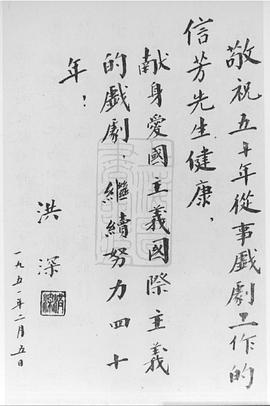 敬祝五十年從事戲劇工作的
信芳先生健康，
献身愛國主義國際主義
的戲劇．繼續努力四十
年！
洪深
一九五一年二月五日